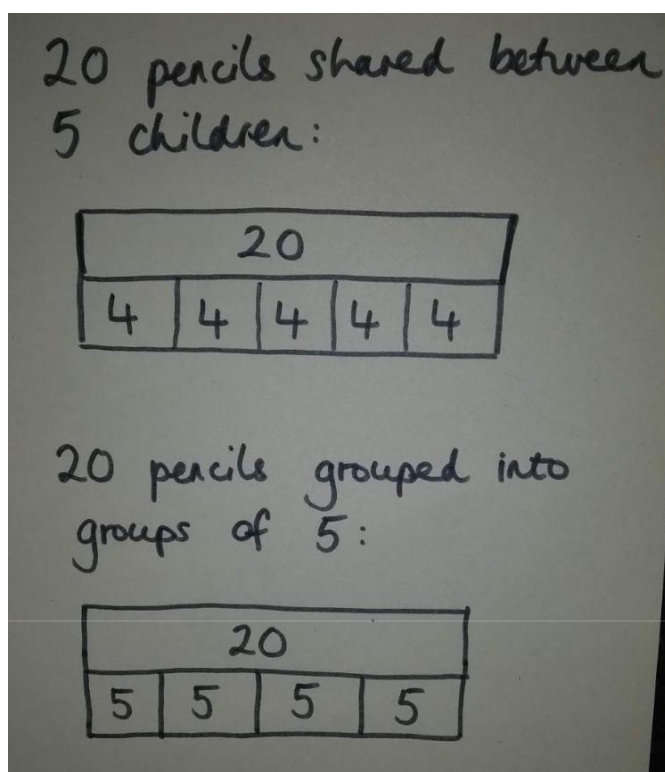 20 pencils shared between
5 children:
20
4 4 4 4 4
20 pencils grouped into
groups of 5:
20
5 5 5 5